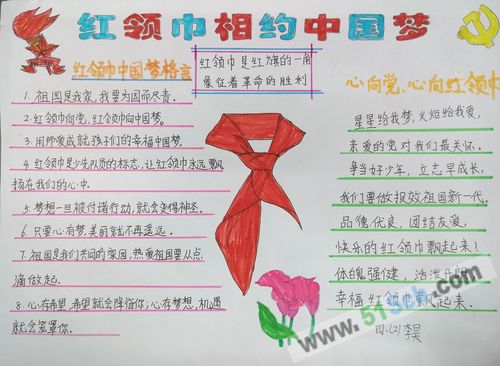 红领巾相约中国梦
红领巾是红旗的一角
象征着革命的胜利
红领巾中国梦格言
1. 祖国是我家,我要为国而尽责。
2. 红领巾向党,红领巾向中国梦。
3. 用师爱成就孩子们的幸福中国梦。
4. 红领巾是少先队员的标志,让红领巾永远飘
扬在我们的心中。
5. 梦想一旦被付诸行动,就会变得神圣。
6. 只要心有梦,美丽就不再遥远。
7. 祖国是我们共同的家园,热爱祖国要从点
滴做起。
8. 心有希望,希望就会降临你;心有梦想,机遇
就会笼罩你。
心向党、心向红领巾
星星给我梦,火炬给我爱,
亲爱的党对我们最关怀。
争当好少年,立志早成长,
我们要做报效祖国新一代。
品德优良,团结友爱,
快乐的红领巾飘起来!
体魄强健,活泼开朗
幸福红领巾飘起来.
四、(2)李昊